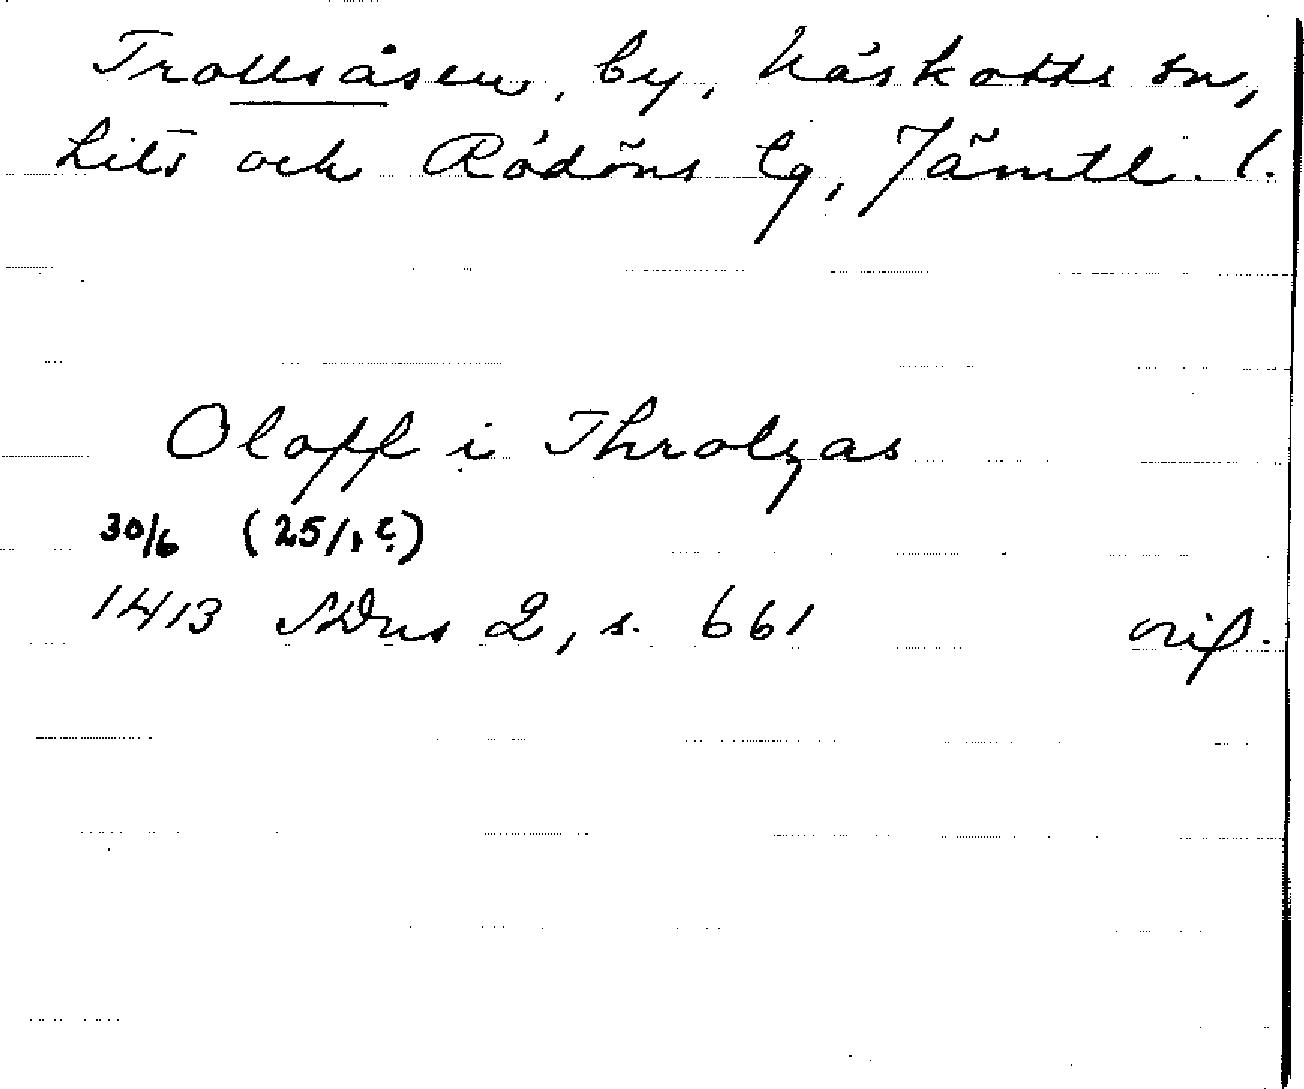 Trollsåsen, by, Näskotts sn,
Lits och Rödöns tg, Jämtl. l.
Oloff i Throlzas
30/6 (25/1?)
1413 SDns 2, s. 661 orig.